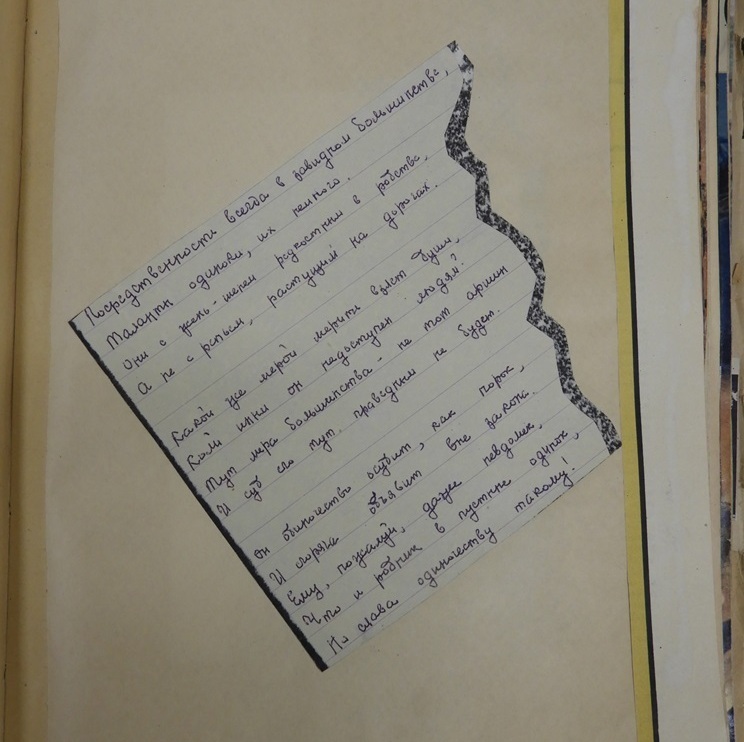 Посредственность всегда в завидном большинстве,
Таланты одиноки, их немного.
Они с жень-шенем редкостным в родстве,
А не с репьём, растущим на дорогах.
Какой же мерой мерить взлёт
Коль он недоступен людям?
Тут мера большинства - не тот аршин
И суд его тут праведным не будет.
Он одиночество осудит, как порок,
И сгоряча объявит вне закона.
Ему, пожалуй, даже невдомёк,
Что и родник в пустыне одинок,
Но слава одиночеству такому!